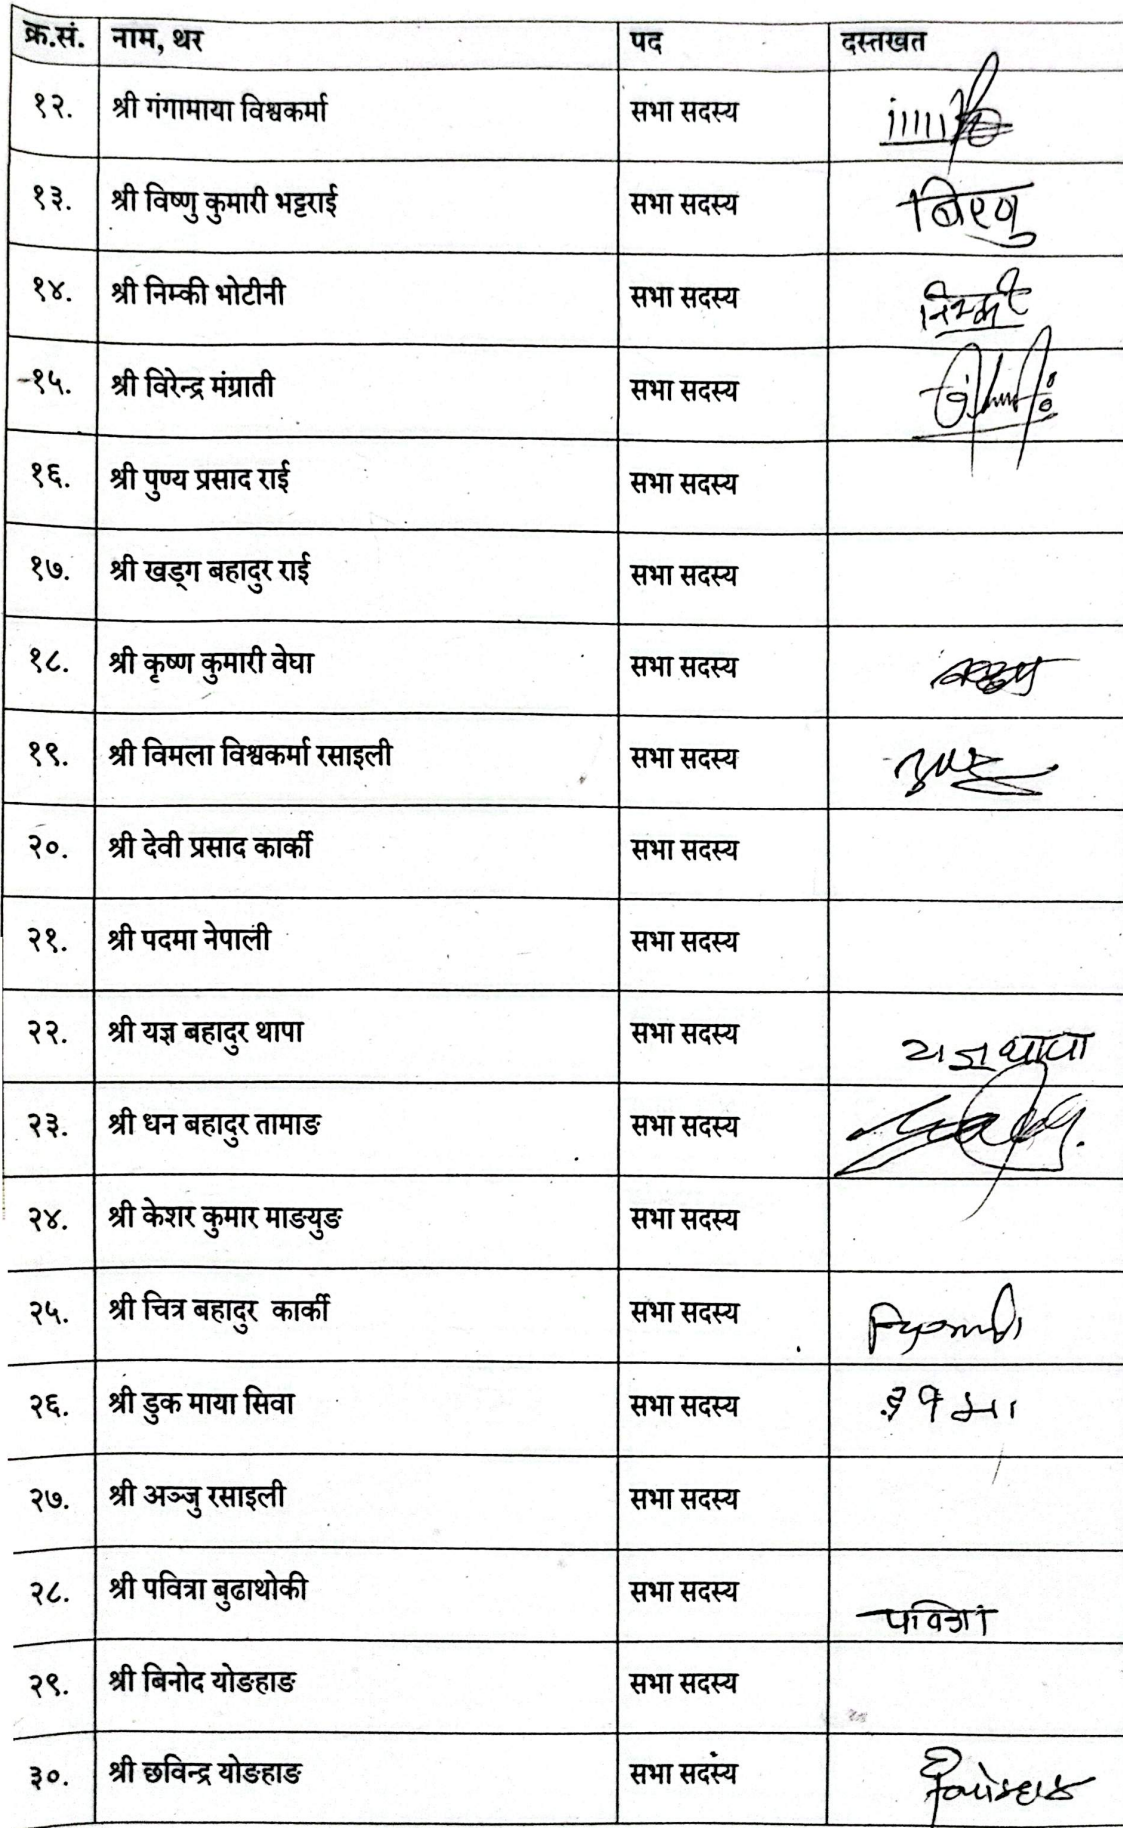 क्र.सं. नाम, थर पद दस्तखत
१२. श्री गंगामाया विश्वकर्मा सभा सदस्य
१३. श्री विष्णु कुमारी भट्टराई सभा सदस्य विष्णु
१४. श्री निम्की भोटीनी सभा सदस्य निम्की
१५. श्री विरेन्द्र मंग्राती सभा सदस्य
१६. श्री पुण्य प्रसाद राई सभा सदस्य
१७. श्री खड्ग बहादुर राई सभा सदस्य
१८. श्री कृष्ण कुमारी वेघा सभा सदस्य
१९. श्री विमला विश्वकर्मा रसाइली सभा सदस्य
२०. श्री देवी प्रसाद कार्की सभा सदस्य
२१. श्री पदमा नेपाली सभा सदस्य
२२. श्री यज्ञ बहादुर थापा सभा सदस्य यज्ञ थापा
२३. श्री धन बहादुर तामाङ सभा सदस्य
२४. श्री केशर कुमार माङयुङ सभा सदस्य
२५. श्री चित्र बहादुर कार्की सभा सदस्य
२६. श्री डुक माया सिवा सभा सदस्य
२७. श्री अञ्जु रसाइली सभा सदस्य
२८. श्री पवित्रा बुढाथोकी सभा सदस्य पवित्रा
२९. श्री बिनोद योङहाङ सभा सदस्य
३०. श्री छविन्द्र योङहाङ सभा सदस्य